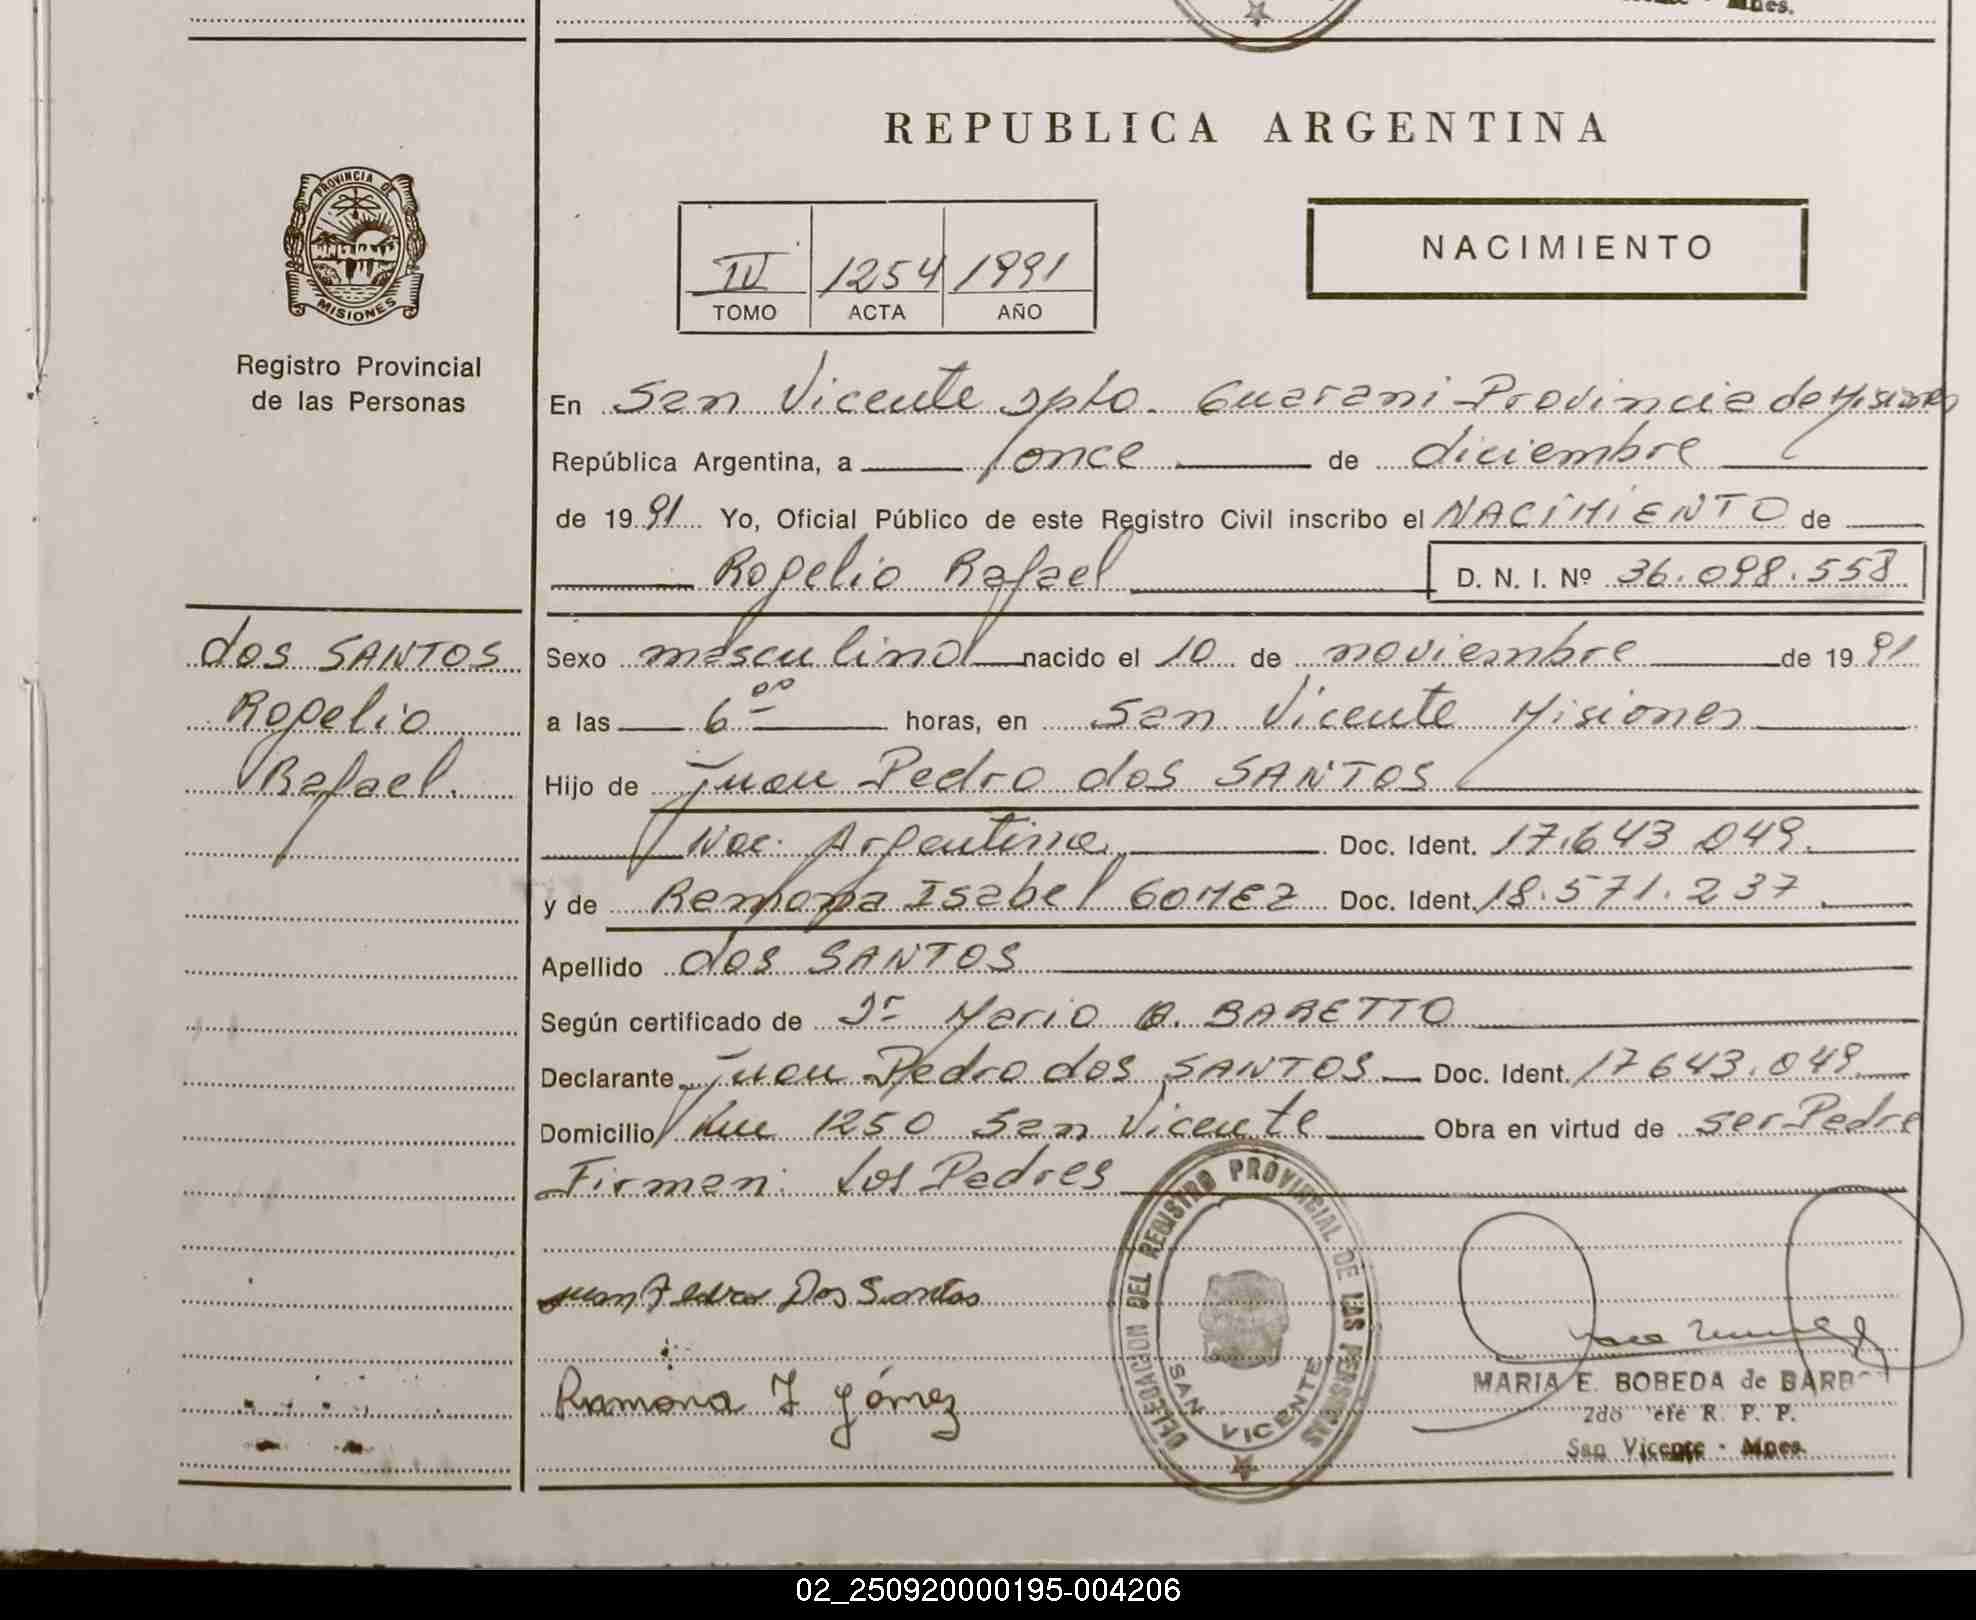 Mnes.
REPUBLICA ARGENTINA
PROVINCIA DE
MISIONES
Registro Provincial
de las Personas
IV 1254 1991
TOMO ACTA AÑO
NACIMIENTO
En San Vicente Dpto. Guarani Provincia de Misiones
República Argentina, a once de diciembre
de 1991 Yo, Oficial Público de este Registro Civil inscribo el NACIMIENTO de
Rogelio Rafael D. N. I. Nº 36.098.558
dos SANTOS
Rogelio
Rafael.
Sexo masculino nacido el 10 de noviembre de 1991
a las 6 00 horas, en San Vicente Misiones
Hijo de Juan Pedro dos SANTOS
Nac. Argentina. Doc. Ident. 17.643.049.
y de Ramona Isabel GOMEZ Doc. Ident. 18.571.237.
Apellido dos SANTOS
Según certificado de Dr Mario B. BARETTO
Declarante Juan Pedro dos SANTOS Doc. Ident. 17.643.049.
Domicilio 1250 San Vicente Obra en virtud de ser Padre
Firman: Los Padres
Juan Pedro Dos Santos
Ramona I Gómez
DELEGACION DEL REGISTRO PROVINCIAL DE LAS PERSONAS
SAN VICENTE
MARIA E. BOBEDA de
2do R. P. P.
San Vicente - Mnes.
02_250920000195-004206